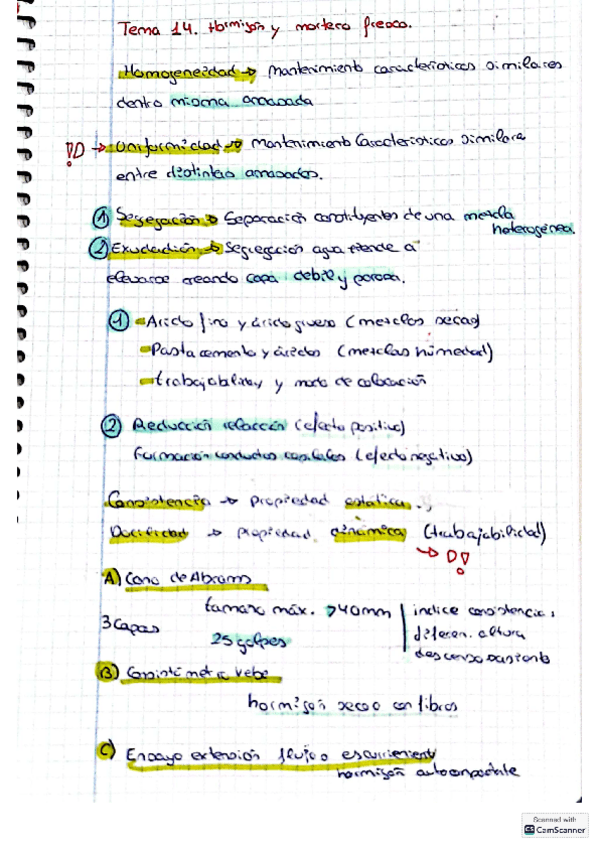 Tema 14. Hormigón y mortero fresco.
Homogeneidad → Mantenimiento características similares
dentro misma amasada
→ Uniformidad → Mantenimiento características similares
entre distintas amasadas.
① Segregación → Separación constituyentes de una mezcla
heterogénea.
② Exudación → Segregación agua tiende a
elevarse creando capa debil y porosa.
① Árido fino y árido grueso (mezclas secas)
Pasta cemento y áridos (mezclas húmedas)
trabajabilidad y modo de colocación
② Reducción relacción (efecto positivo)
Formación conductos capilares (efecto negativo)
Consistencia → Propiedad estática.,
Docilidad → propiedad dinámica (trabajabilidad)
A) Cono de Abrams
tamaño máx. >40mm | indice consistencia:
3 Capas
25 golpes
diferen. altura
descenso asiento
B) Consistómetro Vebe
hormigón seco o con fibras
C) Ensayo extensión flujo o escurrimiento
hormigón autocompactante
Scanned with
CS CamScanner